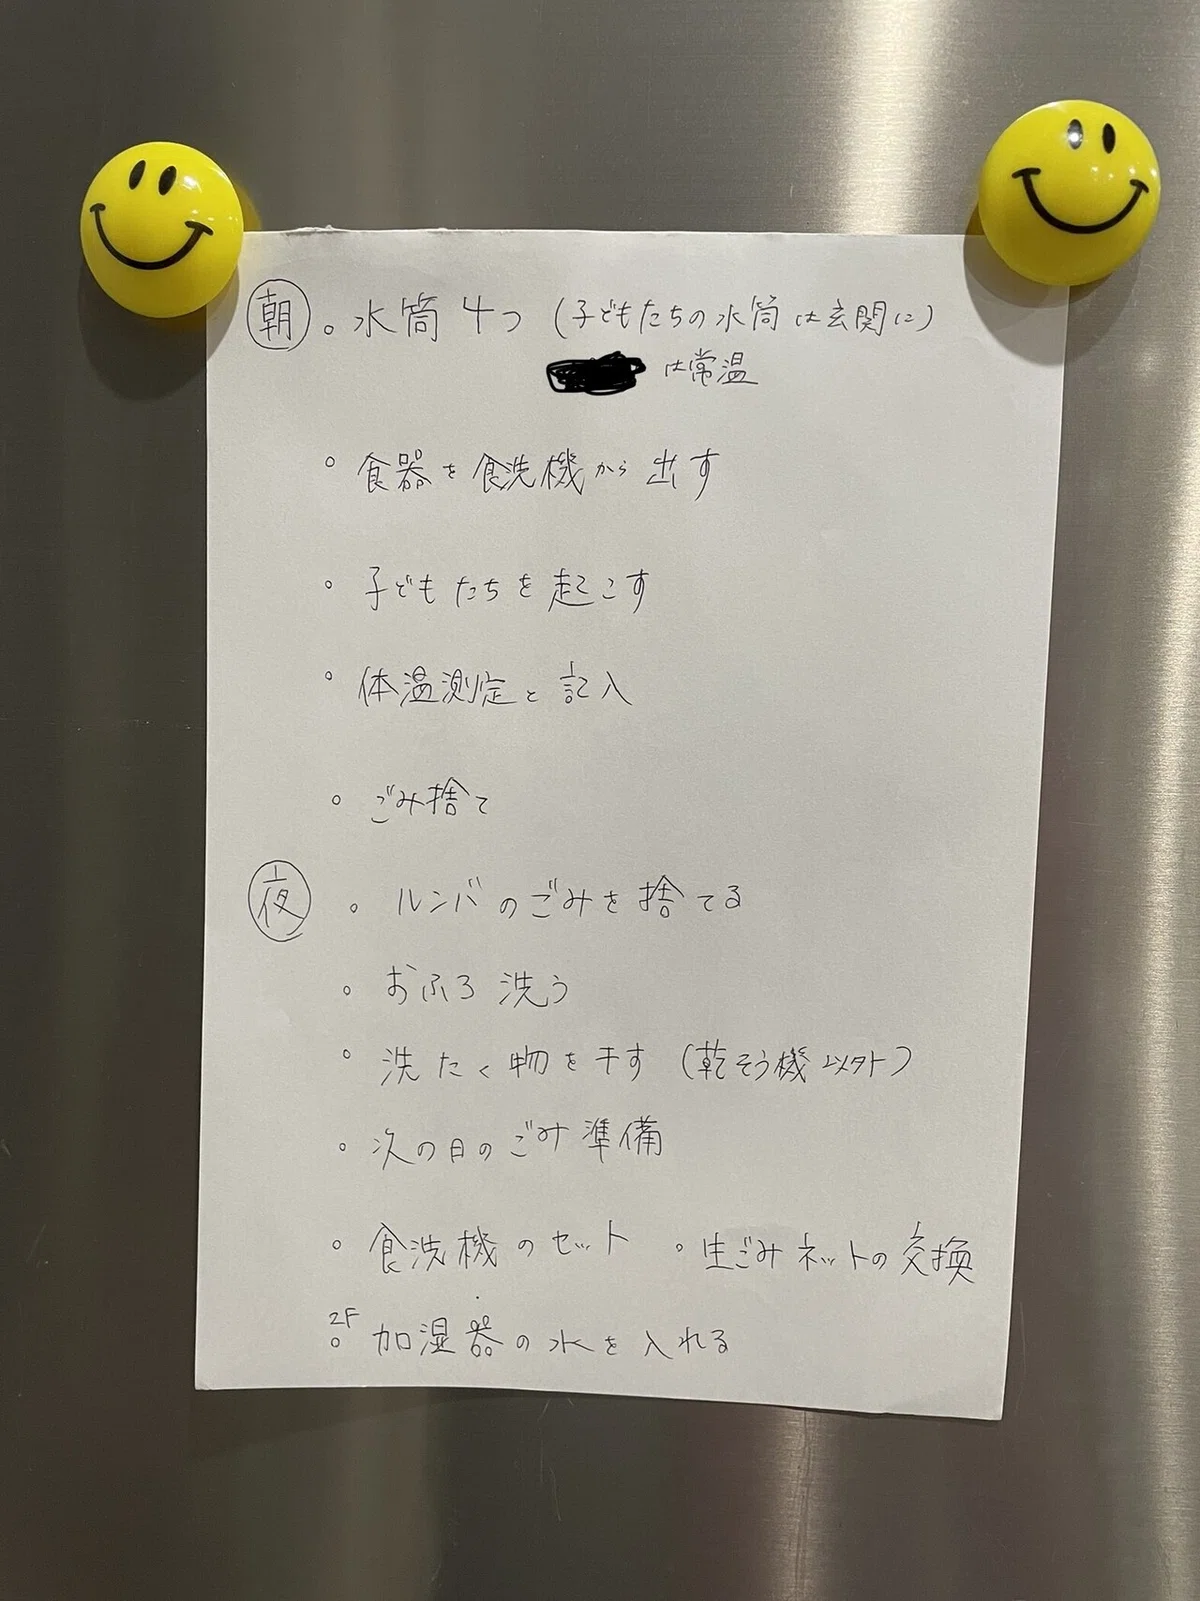 朝 。水筒 4つ (子どもたちの水筒は玄関に)
は常温
。食器を食洗機から出す
。子どもたちを起こす
。体温測定と記入
。ごみ捨て
夜 。ルンバのごみを捨てる
。おふろ洗う
。洗たく物を干す (乾そう機以外)
。次の日のごみ準備
。食洗機のセット 。生ごみネットの交換
2F
。加湿器の水を入れる